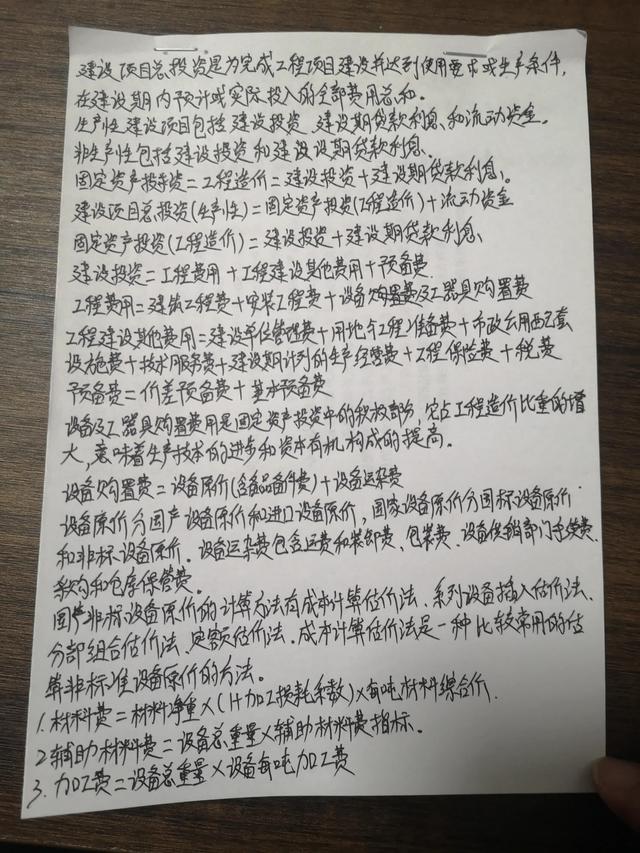 建设项目总投资是为完成工程项目建设并达到使用要求或生产条件,
在建设期内预计或实际投入的全部费用总和。
生产性建设项目包括建设投资、建设期贷款利息、和流动资金。
非生产性包括建设投资和建设期贷款利息、
固定资产投资=工程造价=建设投资+建设期贷款利息。
建设项目总投资(生产性)=固定资产投资(工程造价)+流动资金
固定资产投资(工程造价)=建设投资+建设期贷款利息、
建设投资=工程费用+工程建设其他费用+预备费
工程费用=建筑工程费+安装工程费+设备购置费及工器具购置费
工程建设其他费用=建设单位管理费+用地与工程准备费+市政公用配套
设施费+技术服务费+建设期计列的生产经营费+工程保险费+税费
预备费=价差预备费+基本预备费
设备及工器具购置费用是固定资产投资中的积极部分,它占工程造价比重的增
大,意味着生产技术的进步和资本有机构成的提高。
设备购置费=设备原价(含备品备件费)+设备运杂费
设备原价分国产设备原价和进口设备原价,国家设备原价分国标设备原价
和非标设备原价。设备运杂费包含运费和装卸费、包装费、设备供销部门手续费、
采购和仓库保管费。
国产非标设备原价的计算方法有成本计算估价法、系列设备插入估价法、
分部组合估价法、定额估价法、成本计算估价法是一种比较常用的估
算非标准设备原价的方法。
1.材料费=材料净重×(1+加工损耗系数)×每吨材料综合价
2辅助材料费=设备总重量×辅助材料费指标。
3.加工费=设备总重量×设备每吨加工费